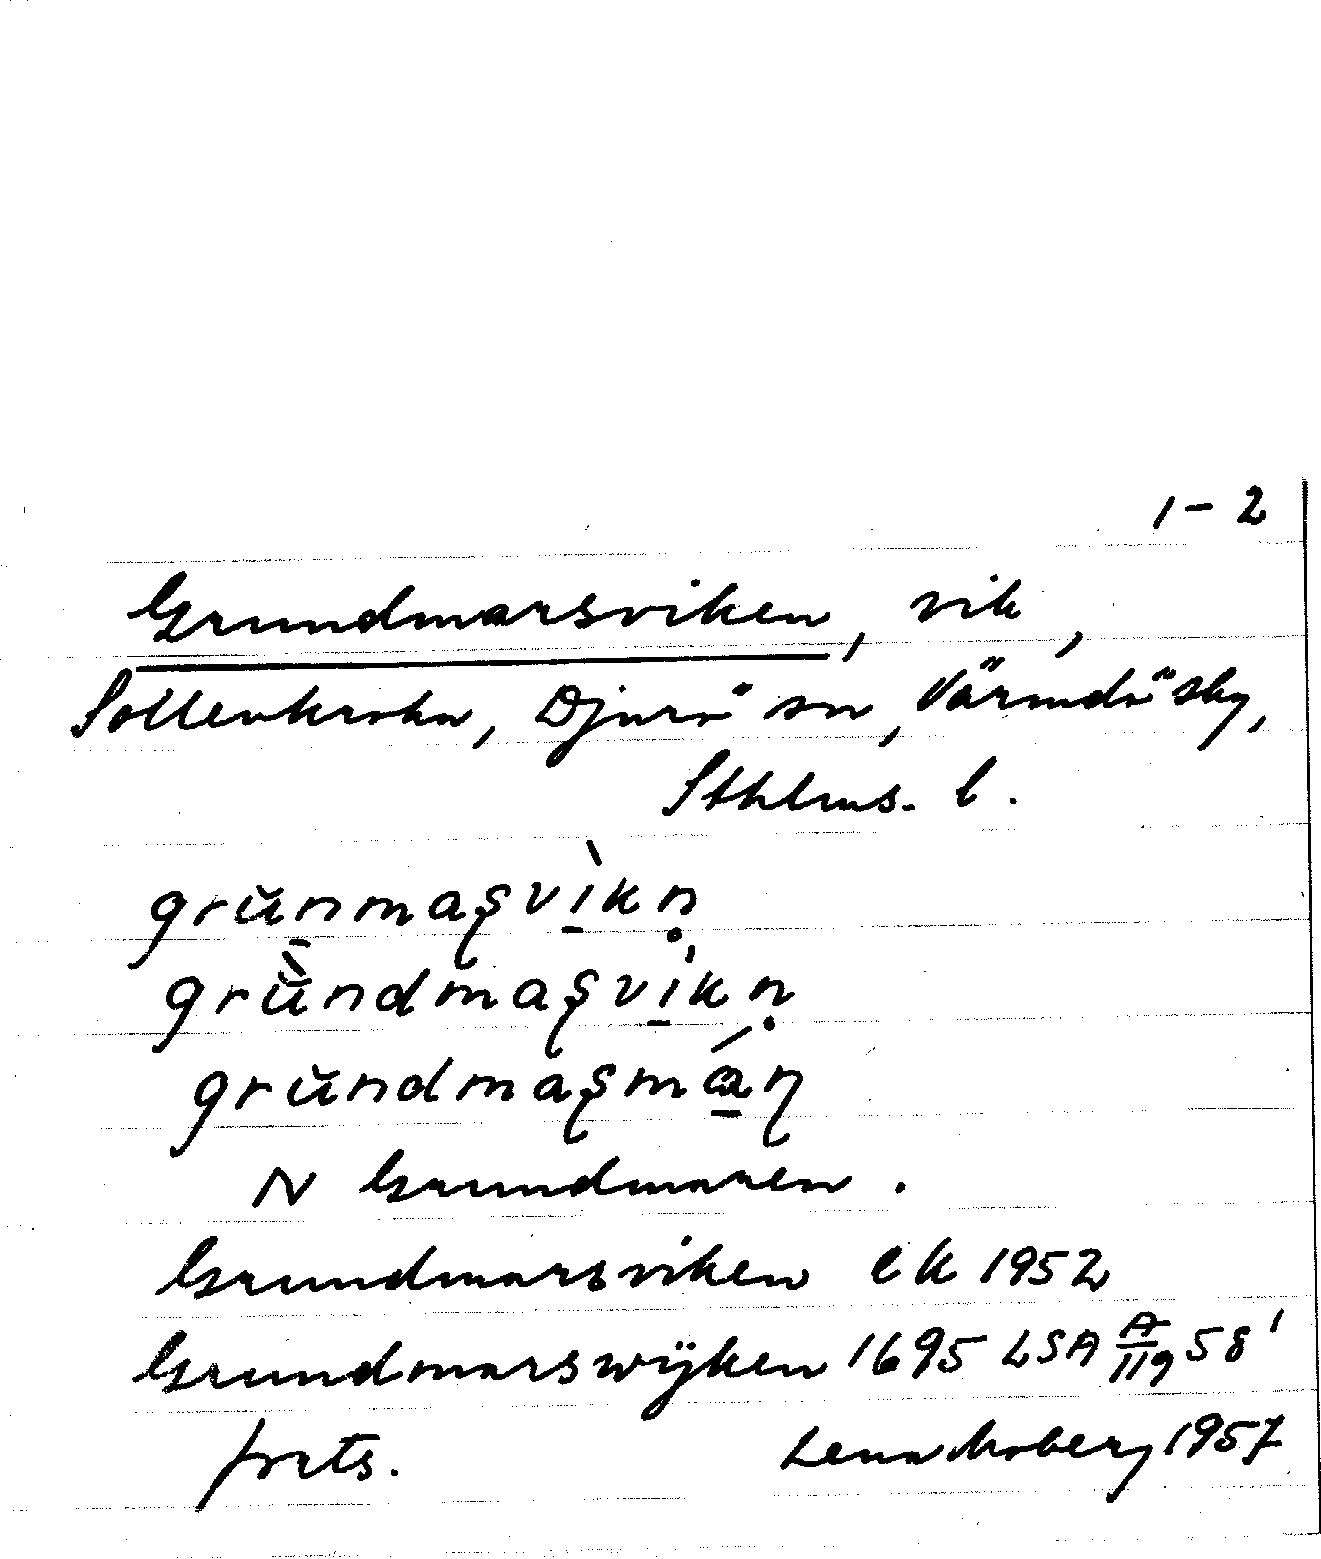 1-2
Grundmarsviken, vik,
Sollenkroka, Djurö sn, Värmdö sky,
Sthlms. l.
grŭnmaʂvìkn̥
grŭ̀ndmaʂvíkn̥
grŭndmaʂmáɳ
N Grundmaren.
Grundmarsviken ek 1952
Grundmarswÿken 1695 LSA A/119 58¹
forts. Lena Moberg 1957